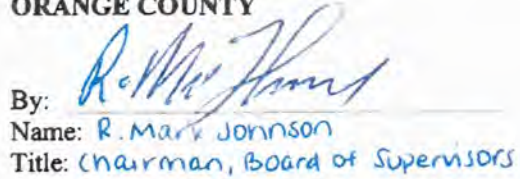 ORANGE COUNTY
By:
Name: R. Mark Johnson
Title: Chairman, Board of Supervisors